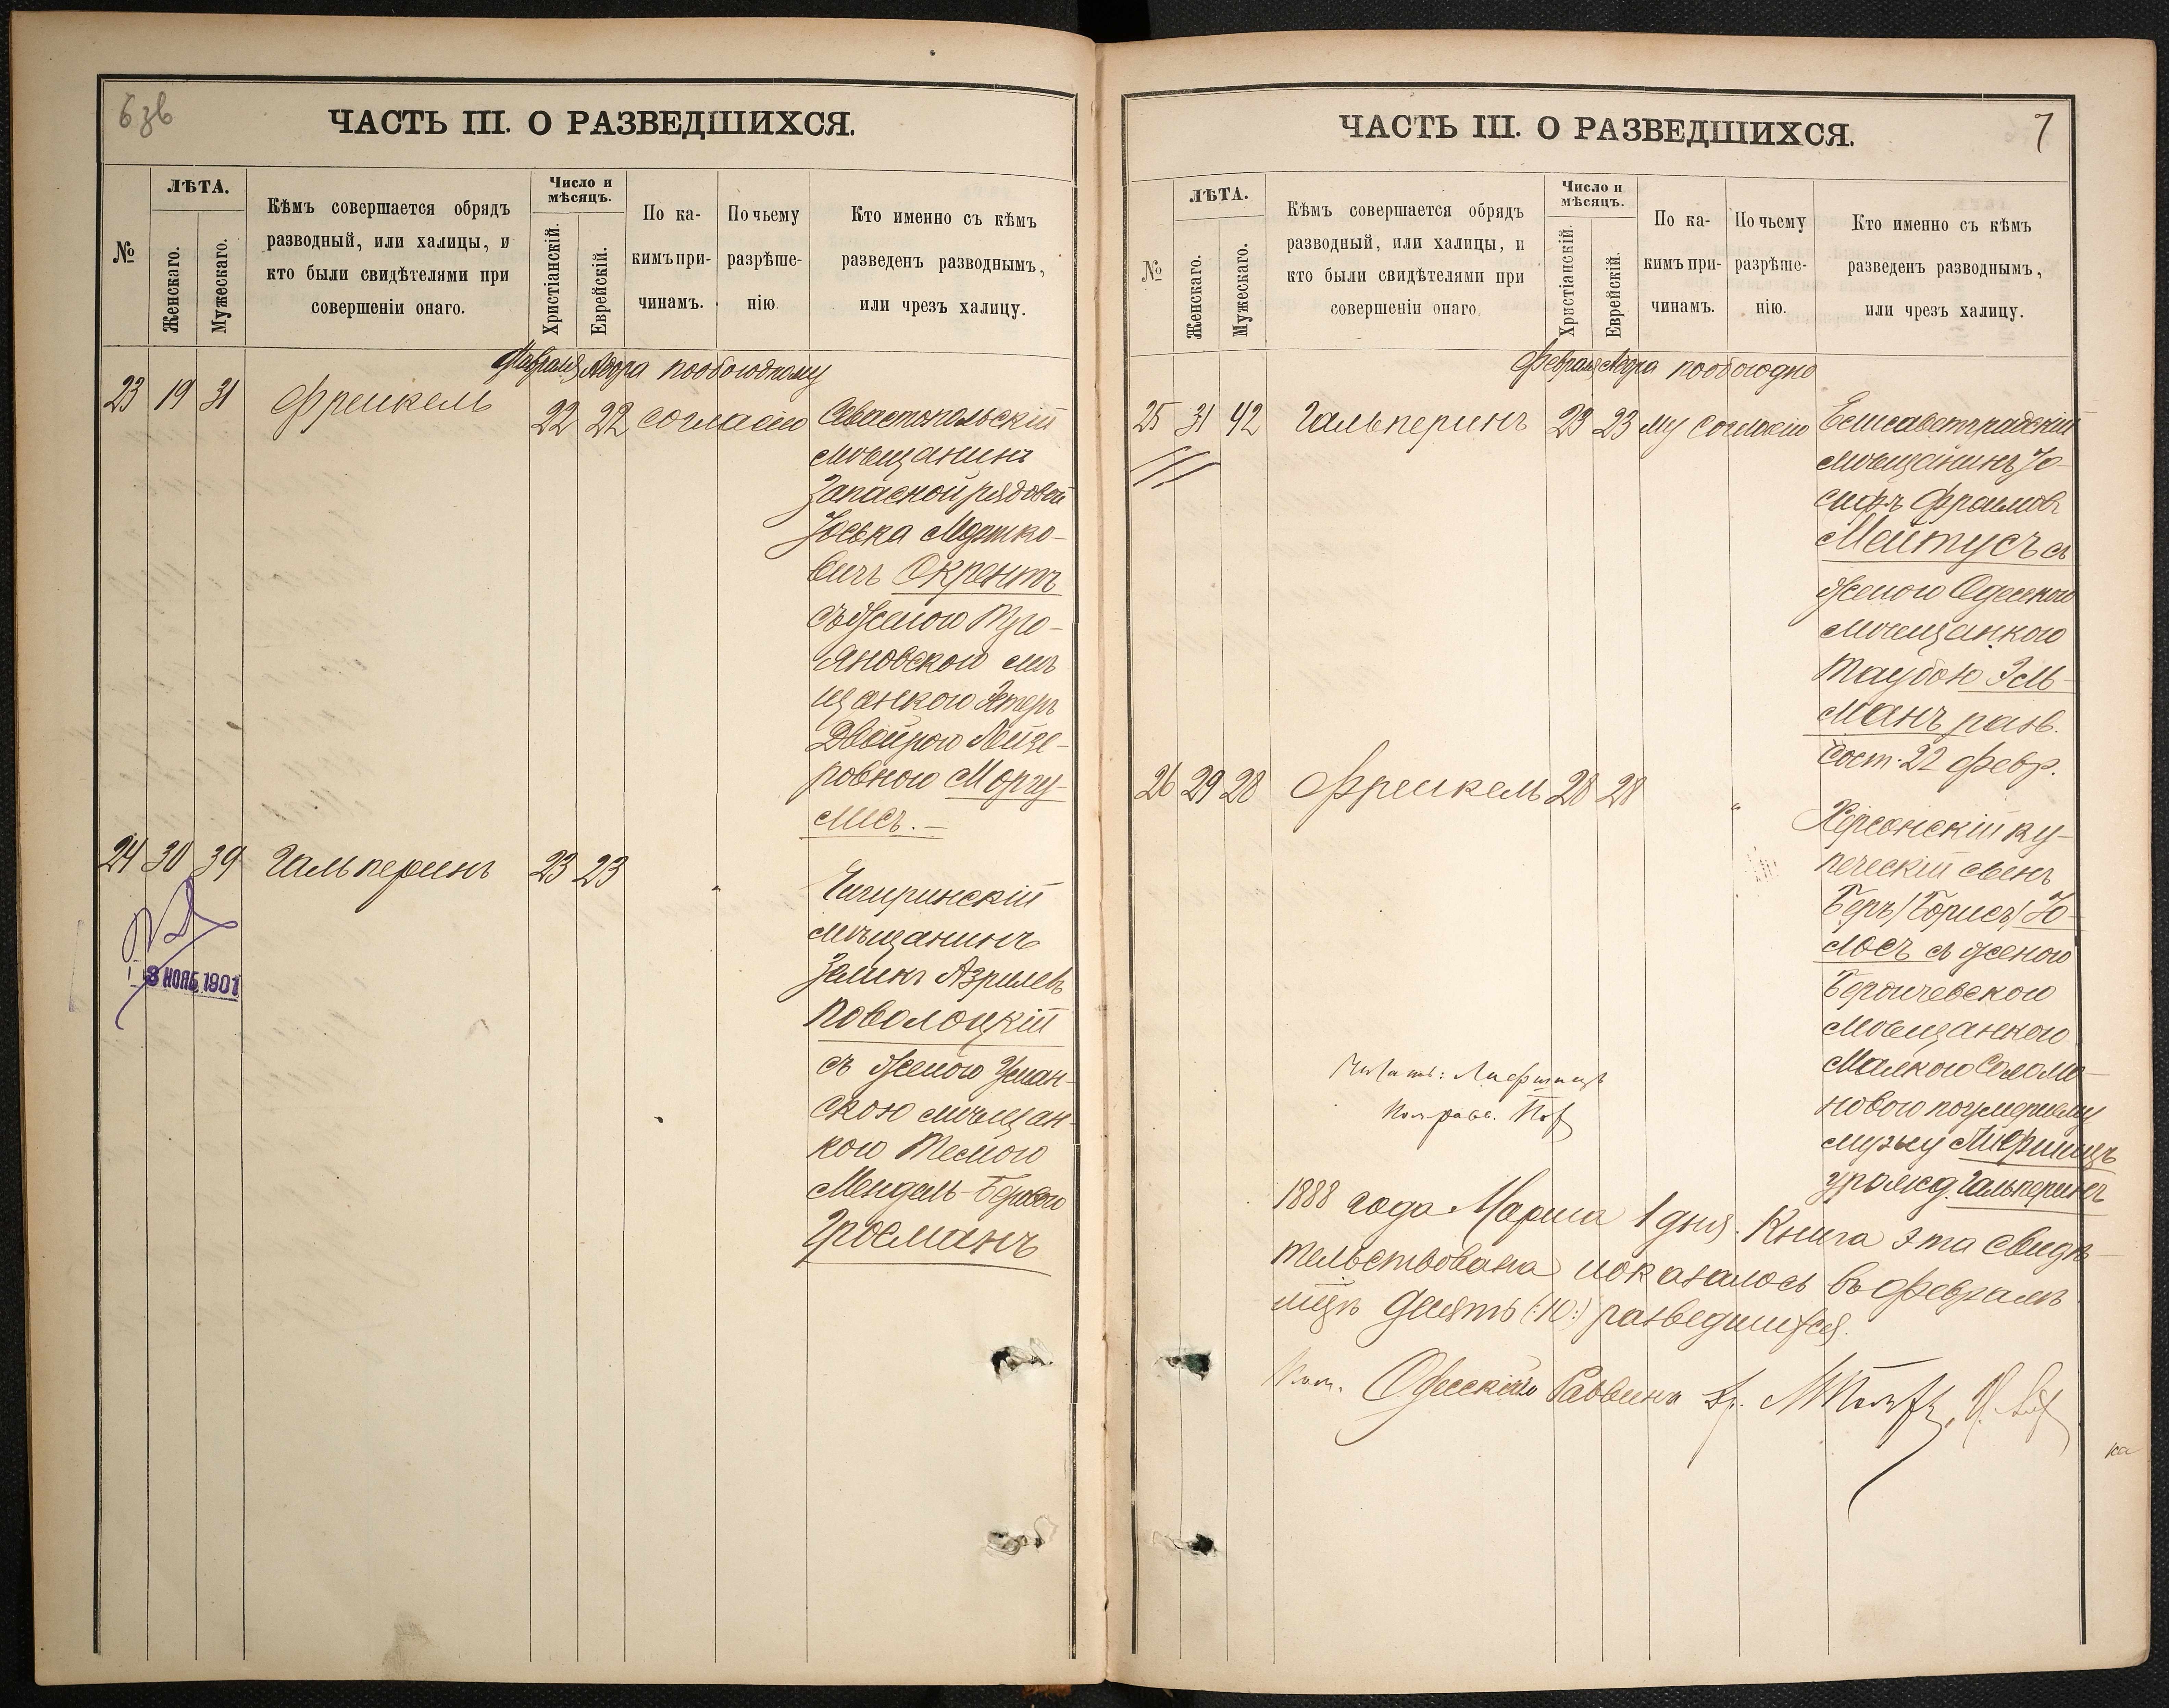 6 зв
ЧАСТЬ III. О РАЗВЕДШИХСЯ.
№
ЛѢТА.
Женскаго.
Мужескаго.
Кѣмъ совершается обрядъ
разводный, или халицы, и
кто были свидѣтелями при
совершеніи онаго.
Число и
мѣсяцъ.
Христіанскій.
Еврейскій.
По ка-
кимъ при-
чинамъ.
По чьему
разрѣше-
нію.
Кто именно съ кѣмъ
разведенъ разводнымъ,
или чрезъ халицу.
Февраля Адора пообоюдному
23 19 31 Френкель 22 22 согласію Севастопольскій
мѣщанинъ
Запасной рядовой
Іоська Мортко-
вичъ Окрентъ
съ женою
яновскою мѣ
щанкою Эстеръ
Двойрою Лейзе-
ровною Моргу-
лисъ.–
24 30 39 Гальперинъ 23 23 " Чигиринскій
мѣщанинъ
Зеликъ Азрилевъ
Поволоцкій
съ женою Уман-
скою мѣщан-
кою Темою
Мендель-Беровою
Гросманъ
8 НОЯБ. 1901
7
ЧАСТЬ III. О РАЗВЕДШИХСЯ.
№
ЛѢТА.
Женскаго.
Мужескаго.
Кѣмъ совершается обрядъ
разводный, или халицы, и
кто были свидѣтелями при
совершеніи онаго.
Число и
мѣсяцъ.
Христіанскій.
Еврейскій.
По ка-
кимъ при-
чинамъ.
По чьему
разрѣше-
нію.
Кто именно съ кѣмъ
разведенъ разводнымъ,
или чрезъ халицу.
Февраля Адора пообоюдно
25 31 42 Гальперинъ 23 23 му согласію Елисаветградскій
мѣщанинъ Іо-
сифъ Фроимовъ
Мейтусъ съ
женою Одесскою
мѣщанкою
Таубою Эль-
манъ разв.
сост. 22 февр.
26 29 28 Френкель 28 28 " Херсонскій ку-
печескій сынъ
Беръ /Борисъ/ Ю-
лосъ съ женою
Бердичевскою
мѣщанкою
Малкою Соломо-
новою поумершему
мужу Лифшицъ
урожд. Гальперинъ
Читать: Лифшицъ
1888 года Марта 1 дня. Книга эта свидѣ-
тельствована и оказалось въ февралѣ
мцѣ десять (:10:) разведшихся.
Одесскаго Раввина Др.